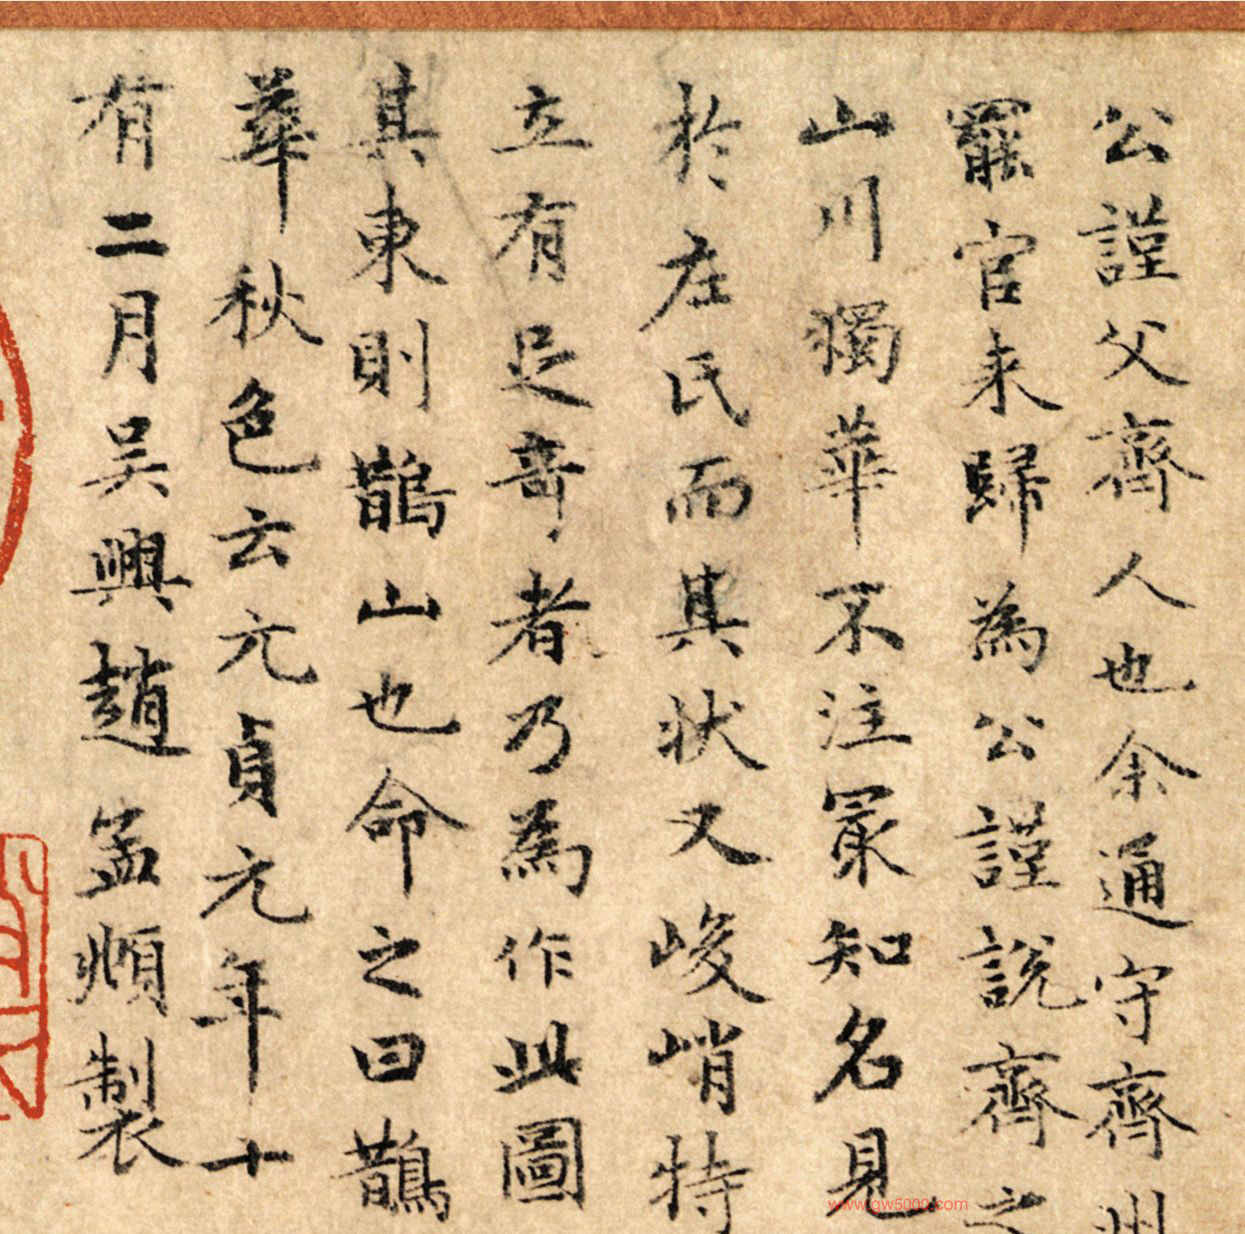 公謹父齊人也余通守齊州
罷官来歸為公謹説齊之
山川獨華不注冣知名見
於左氏而其状又峻峭特
立有足竒者乃為作此圖
其東則鵲山也命之曰鵲
華秋色云元貞元年十
有二月吳興趙孟頫製
www.gw5000.com